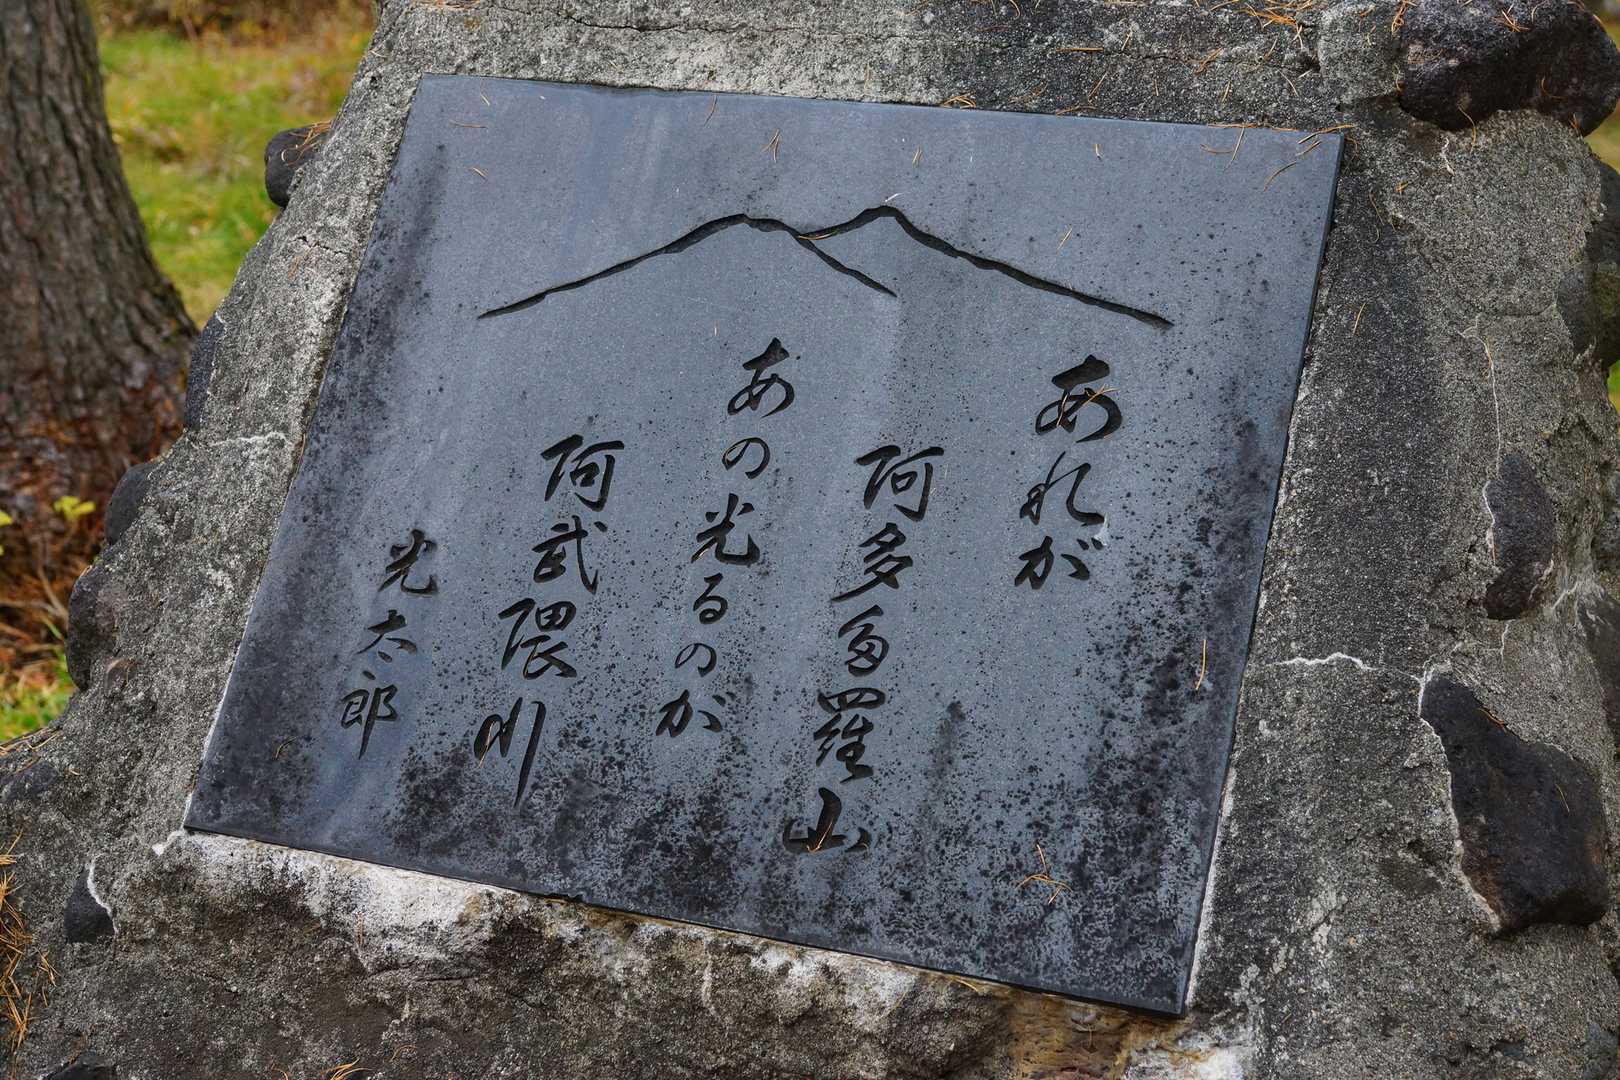 あれが
阿多多羅山
あの光るのが
阿武隈川
光太郎